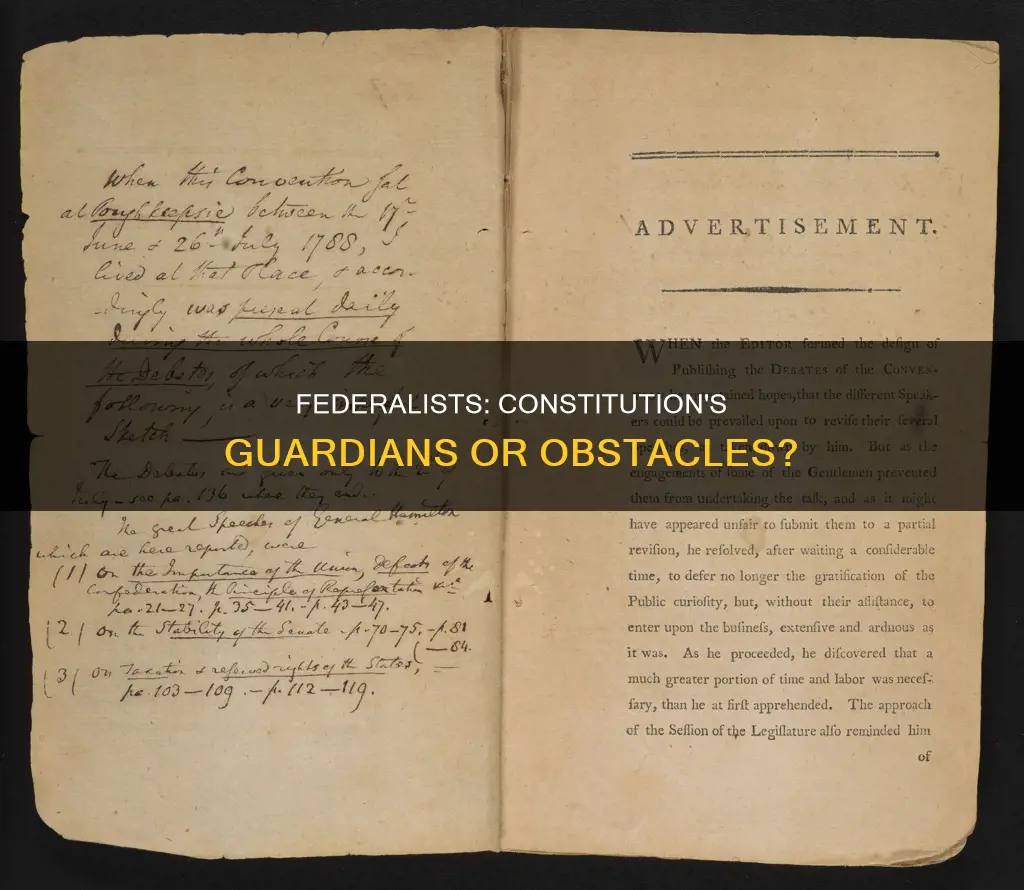 When this Convention sat
at Poughkeepsie between the 17th
June & 26th July 1788, I
lived at that Place, & accor-
dingly was present daily
during the whole Course of
the Debates, of which the
following is a very
Sketch
The Debates are given only to the 2d of
July – see pa. 136 where they end. –
The great Speeches of General Hamilton
which are here reported, were
(1) On the Importance of the Union, defects of the
Confederation, the Principle of Representation &c
pa. 21–27. p. 35–41. – p. 43–47.
(2) On the Stability of the Senate – p. 70–75. – p. 81
–84.
(3) On Taxation & reserved rights of the States,
pa. 103–109. – p. 112–119.
ADVERTISEMENT.
WHEN the EDITOR formed the design of
Publishing the DEBATES of the CONVEN-
tained hopes, that the different Speak-
ers could be prevailed upon to revise their several
by him. But as the
engagements of some of the Gentlemen prevented
them from undertaking the task, and as it might
have appeared unfair to submit them to a partial
revision, he resolved, after waiting a considerable
time, to defer no longer the gratification of the
Public curiosity, but, without their assistance, to
enter upon the business, extensive and arduous as
it was. As he proceeded, he discovered that a
much greater portion of time and labor was neces-
sary, than he at first apprehended. The approach
of the Session of the Legislature also reminded him
of
FEDERALISTS: CONSTITUTION'S
GUARDIANS OR OBSTACLES?